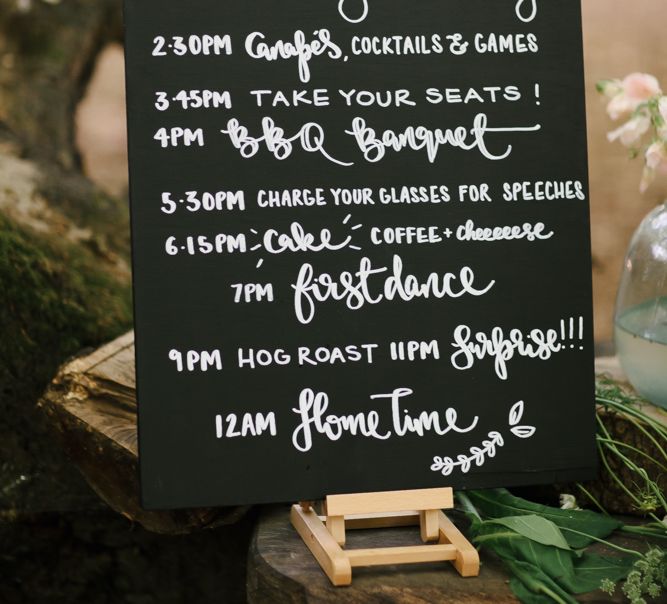 2·30PM Canapés, COCKTAILS & GAMES
3·45PM TAKE YOUR SEATS !
4PM BBQ Banquet
5·30PM CHARGE YOUR GLASSES FOR SPEECHES
6·15PM Cake COFFEE + cheeeeese
7PM first dance
9PM HOG ROAST 11PM Surprise!!!
12AM Home Time